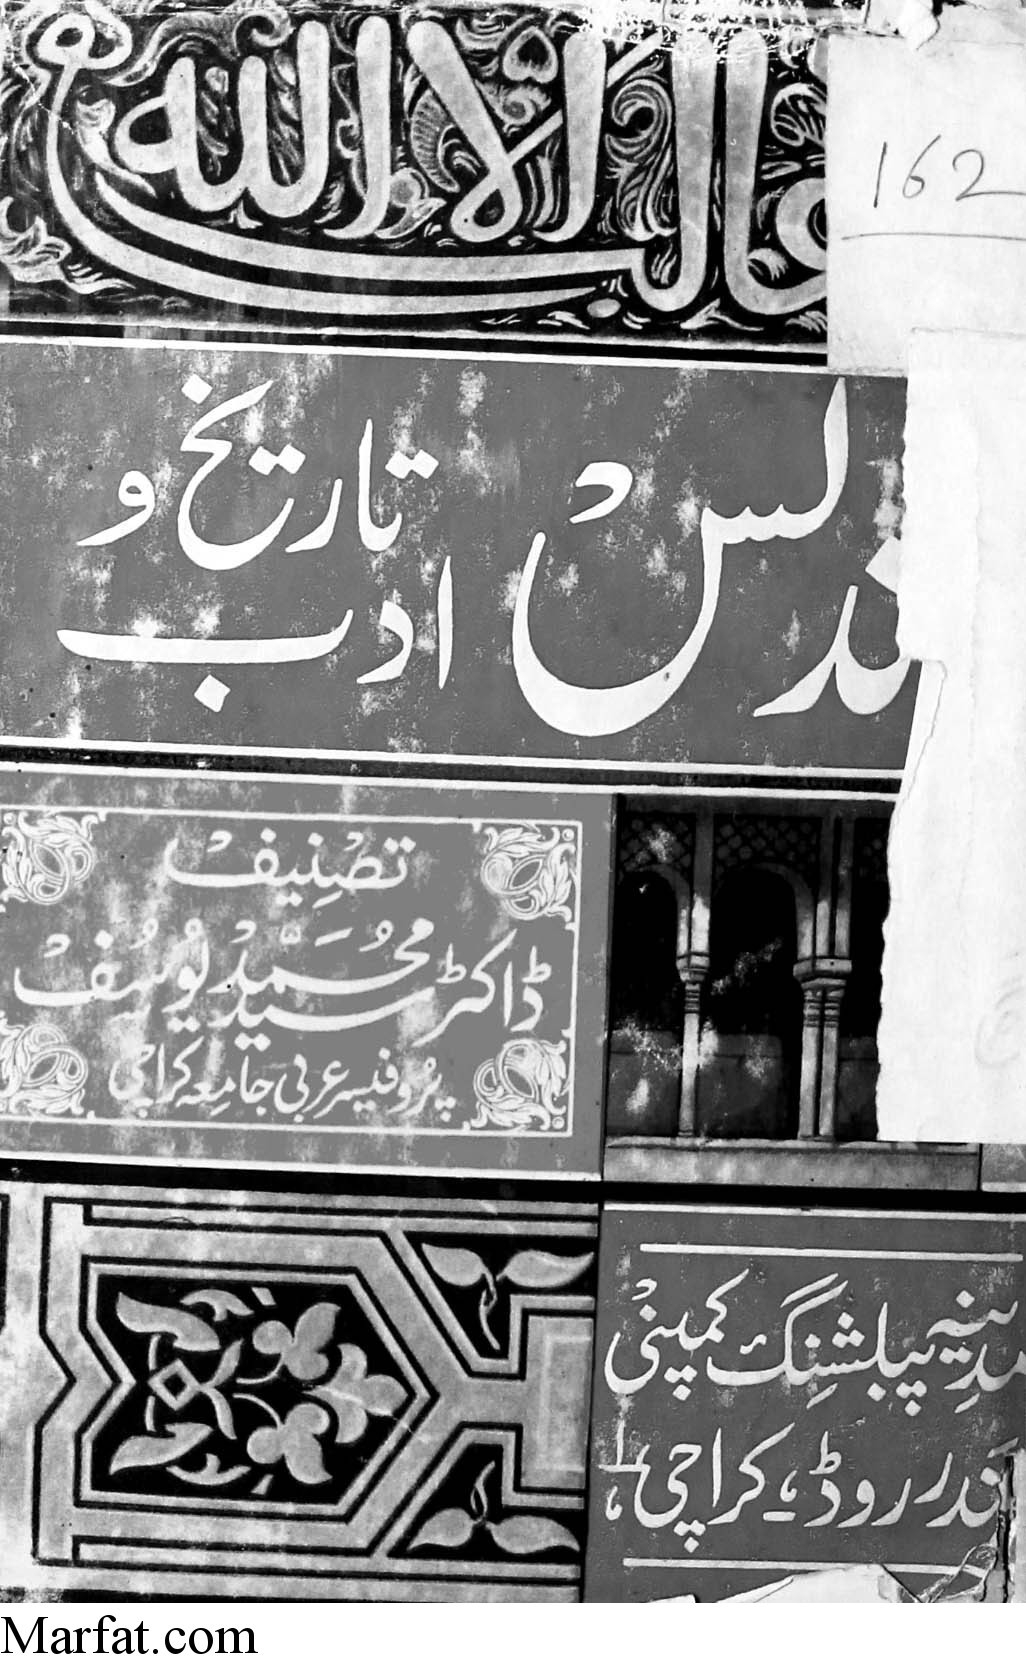 غالب الا الله
162
ندلس
تاریخ و
ادب
تصنیف
ڈاکٹر سید محمد یوسف
پروفیسر عربی جامعہ کراچی
مدینہ پبلشنگ کمپنی
بندر روڈ، کراچی ۱
Marfat.com